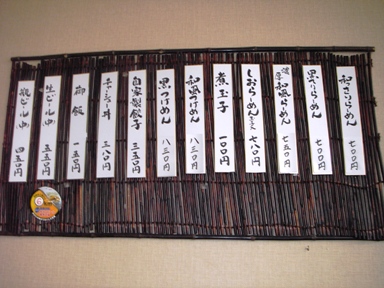 和らーめん 七〇〇円
黒らーめん 七〇〇円
濃厚和風らーめん 七五〇円
しおらーめん 七八〇円
煮玉子 一〇〇円
和風つけめん 八三〇円
黒つけめん 八三〇円
自家製餃子 三五〇円
チャーシュー丼 三八〇円
御飯 一五〇円
生ビール(中) 五五〇円
瓶ビール(中) 四五〇円